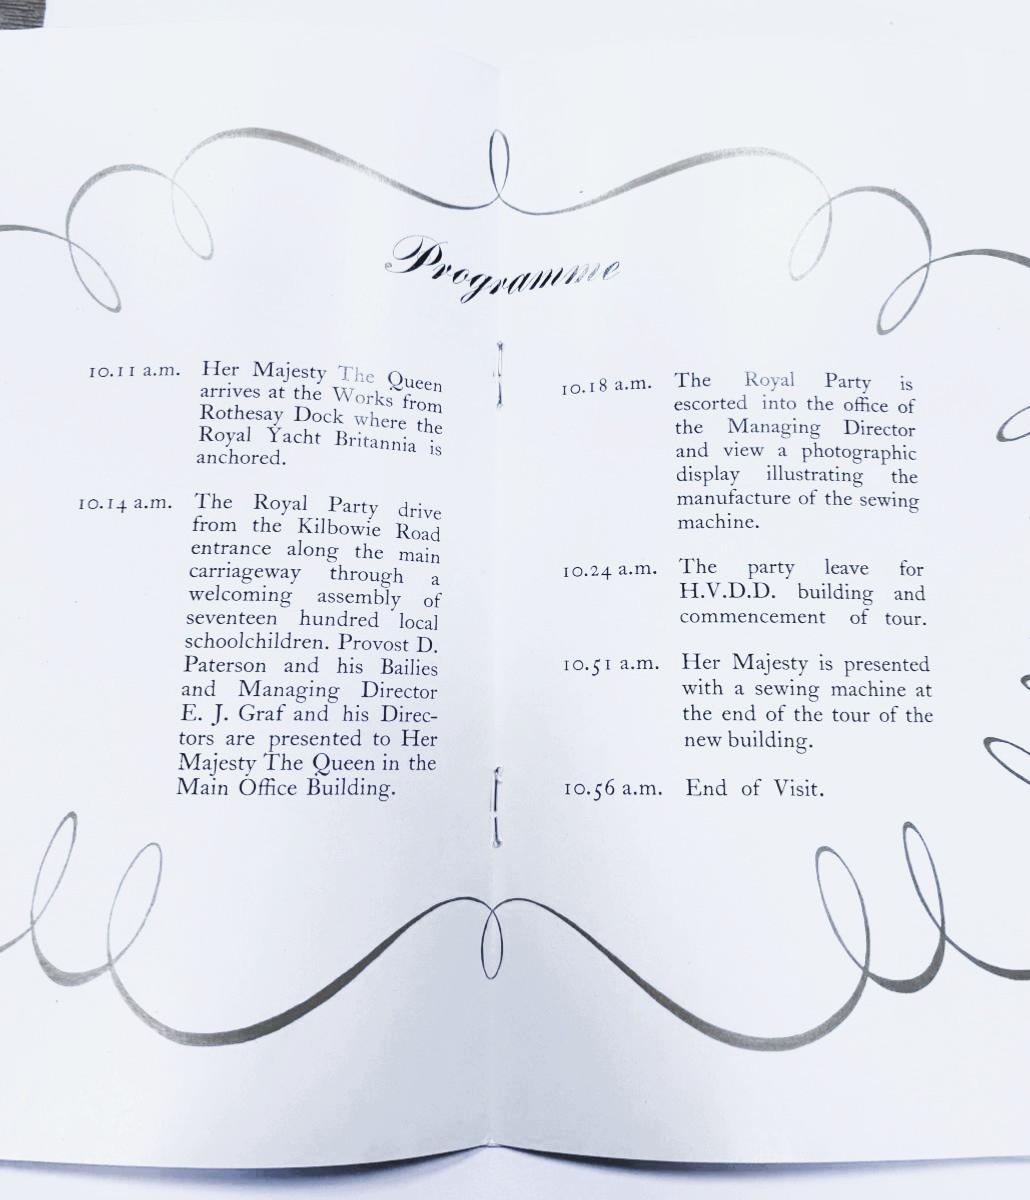 Programme
10.11 a.m. Her Majesty The Queen
arrives at the Works from
Rothesay Dock where the
Royal Yacht Britannia is
anchored.
10.14 a.m. The Royal Party drive
from the Kilbowie Road
entrance along the main
carriageway through a
welcoming assembly of
seventeen hundred local
schoolchildren. Provost D.
Paterson and his Bailies
and Managing Director
E. J. Graf and his Direc-
tors are presented to Her
Majesty The Queen in the
Main Office Building.
10.18 a.m. The Royal Party is
escorted into the office of
the Managing Director
and view a photographic
display illustrating the
manufacture of the sewing
machine.
10.24 a.m. The party leave for
H.V.D.D. building and
commencement of tour.
10.51 a.m. Her Majesty is presented
with a sewing machine at
the end of the tour of the
new building.
10.56 a.m. End of Visit.